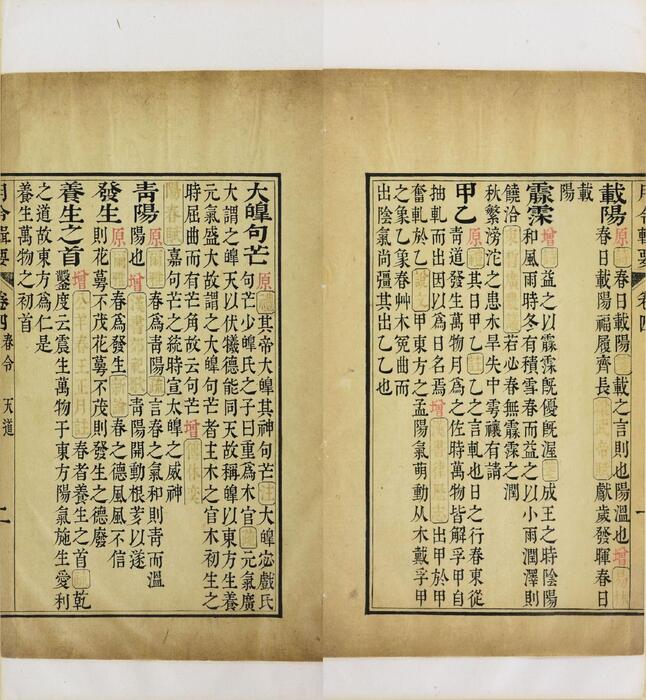 月令輯要 卷四 一
載陽 原詩春日載陽載之言則也陽溫也增易林
春日載陽福履齊長獻歲發暉春日
載
陽
霢霂 增詩益之以霢霂既優既渥箋成王之時陰陽
和風雨時冬有積雪春而益之以小雨潤澤則
饒洽束晳廣農議若必春無霢霂之潤
秋繁滂沱之患水旱失中雩禳有請
甲乙 原禮其日甲乙註乙之言軋也日之行春東從
青道發生萬物月爲之佐時萬物皆解孚甲自
抽軋而出因以爲日名焉增漢書律歷志出甲於甲
奮軋於乙說文甲東方之孟陽氣萌動从木戴孚甲
之象乙象春艸木冤曲而
出陰氣尚彊其出乙乙也
大皥句芒 原禮其帝大皥其神句芒注大皥宓戲氏
句芒少皥氏之子曰重爲木官疏元氣廣
大謂之皥天以伏犧德能同天故稱皥以東方生養
元氣盛大故謂之大皥句芒者主木之官木初生之
時屈曲而有芒角故云句芒增
陽春賦嘉句芒之統時宣太皥之威神
青陽 原爾雅春爲青陽疏言春之氣和則青而溫
陽也增漢書郊祀歌青陽開動根荄以遂
發生 原爾雅春爲發生春之德風風不信
則花蕚不茂花蕚不茂則發生之德廢
養生之首 增公羊春王正月註春者養生之首疏乾
鑿度云震生萬物于東方陽氣施生愛利
之道故東方爲仁是
養生萬物之初首
月令輯要 卷四 春令 天道 二